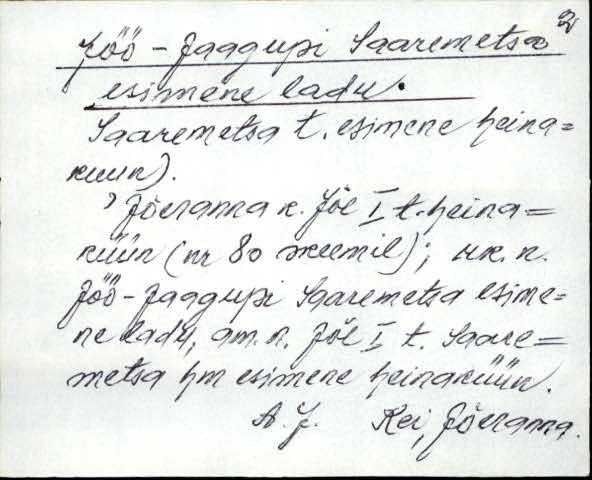 2
Jöö-Jaagupi Saaremetsa
esimene ladu.
Saaremetsa t. esimene heina=
küün).
Jõeranna k. Jõe I t. heina=
küün (nr 80 skeemil); uk. n.
Jöö-Jaagupi Saaremetsa esime=
ne ladu, am. n. Jõe I t. Saare=
metsa hm esimene heinaküün.
A. J. Kei, Jõeranna.